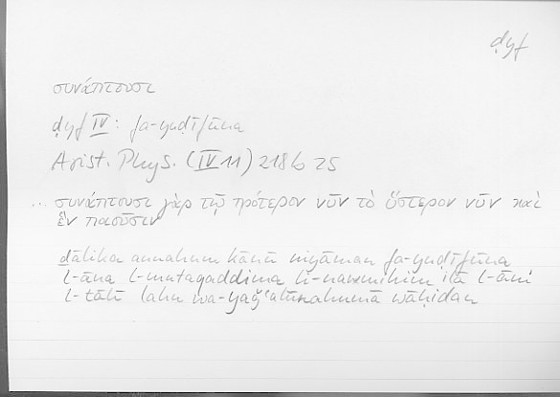 ḍyf
συνάπτουσι
ḍyf IV: fa-yuḍīfūna
Arist. Phys. (IV 11) 218b25
... συνάπτουσι γὰρ τῷ πρότερον νῦν τὸ ὕστερον νῦν καὶ
ἓν ποιοῦσιν
ḏālika annahum kānū niyāman fa-yuḍīfūna
l-āna l-mutaqaddima li-nawmihim ilā l-āni
l-tālī lahu wa-yaǧʿalūnahumā wāḥidan